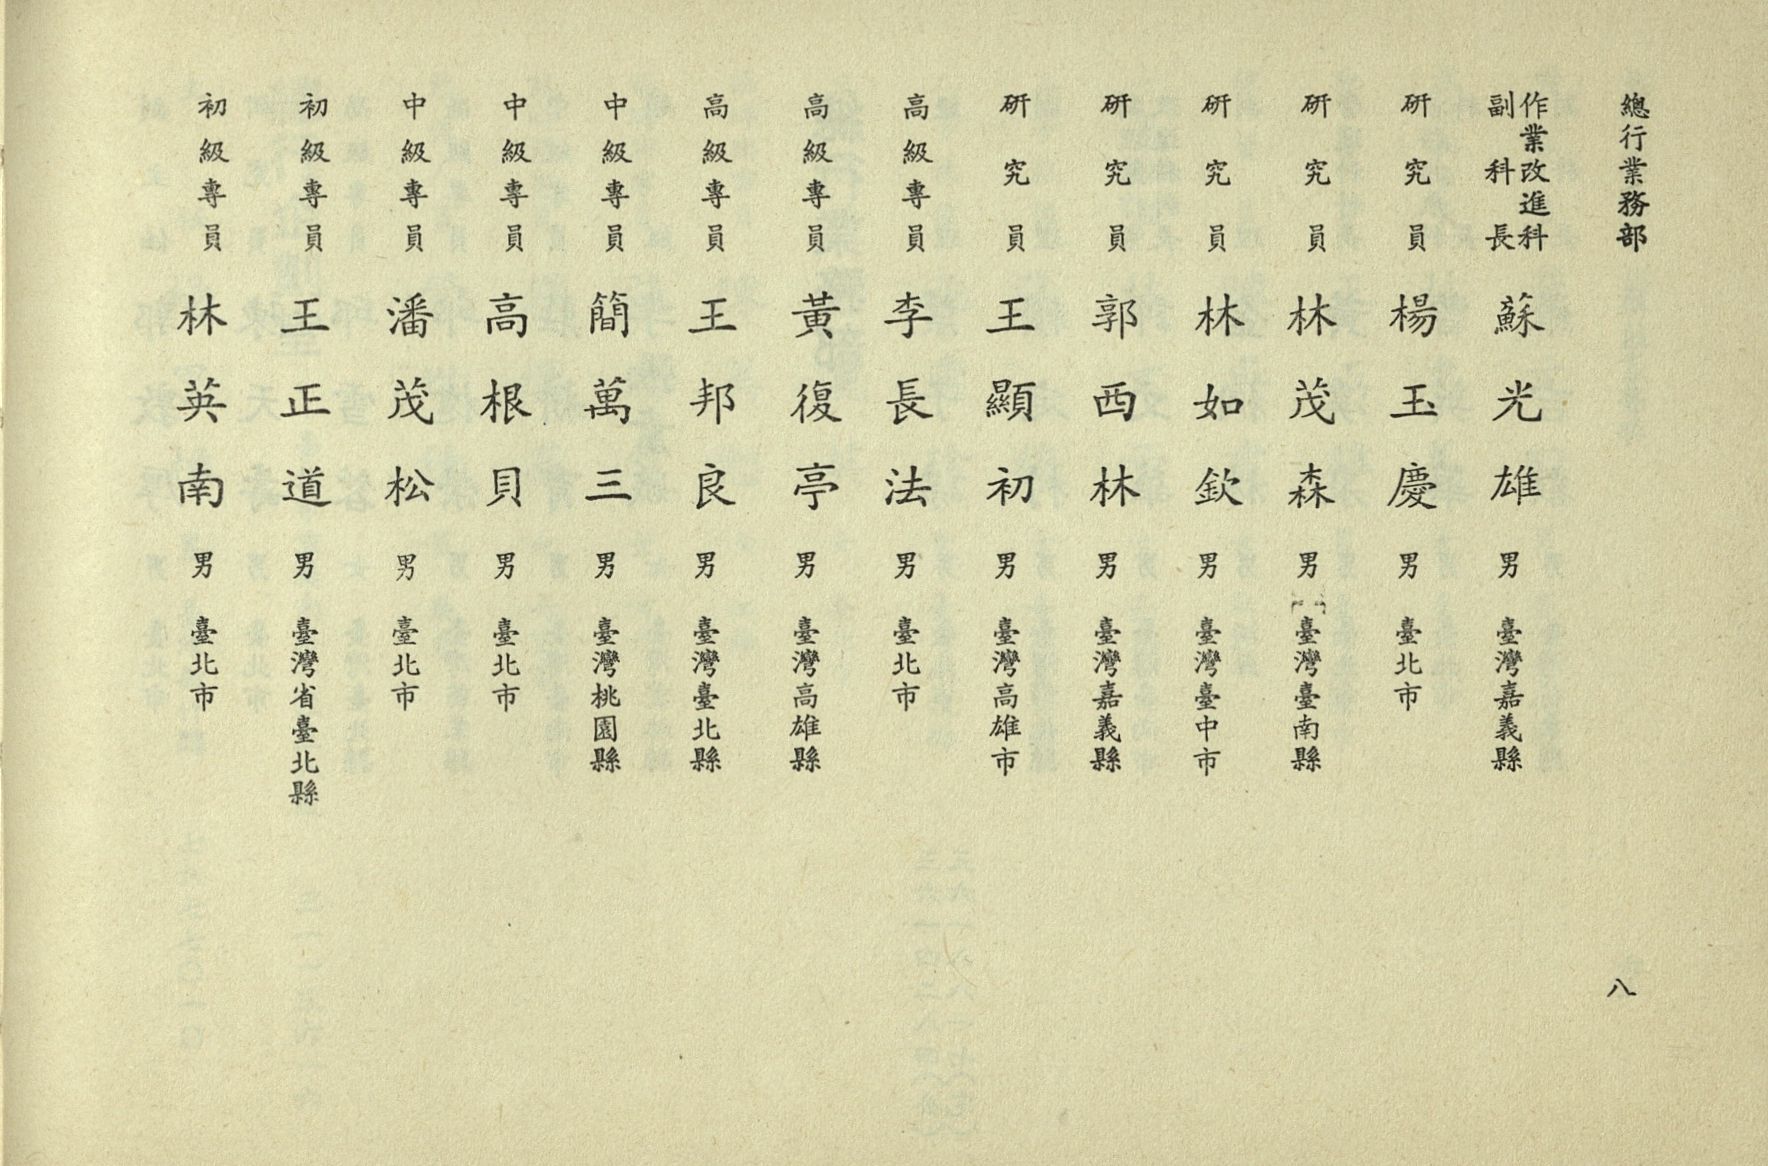 總行業務部
八
作業改進科
副科長 蘇光雄 男 臺灣嘉義縣
研究員 楊玉慶 男 臺北市
研究員 林茂森 男 臺灣臺南縣
研究員 林如欽 男 臺灣臺中市
研究員 郭西林 男 臺灣嘉義縣
研究員 王顯初 男 臺灣高雄市
高級專員 李長法 男 臺北市
高級專員 黃復亭 男 臺灣高雄縣
高級專員 王邦良 男 臺灣臺北縣
中級專員 簡萬三 男 臺灣桃園縣
中級專員 高根貝 男 臺北市
中級專員 潘茂松 男 臺北市
初級專員 王正道 男 臺灣省臺北縣
初級專員 林英南 男 臺北市